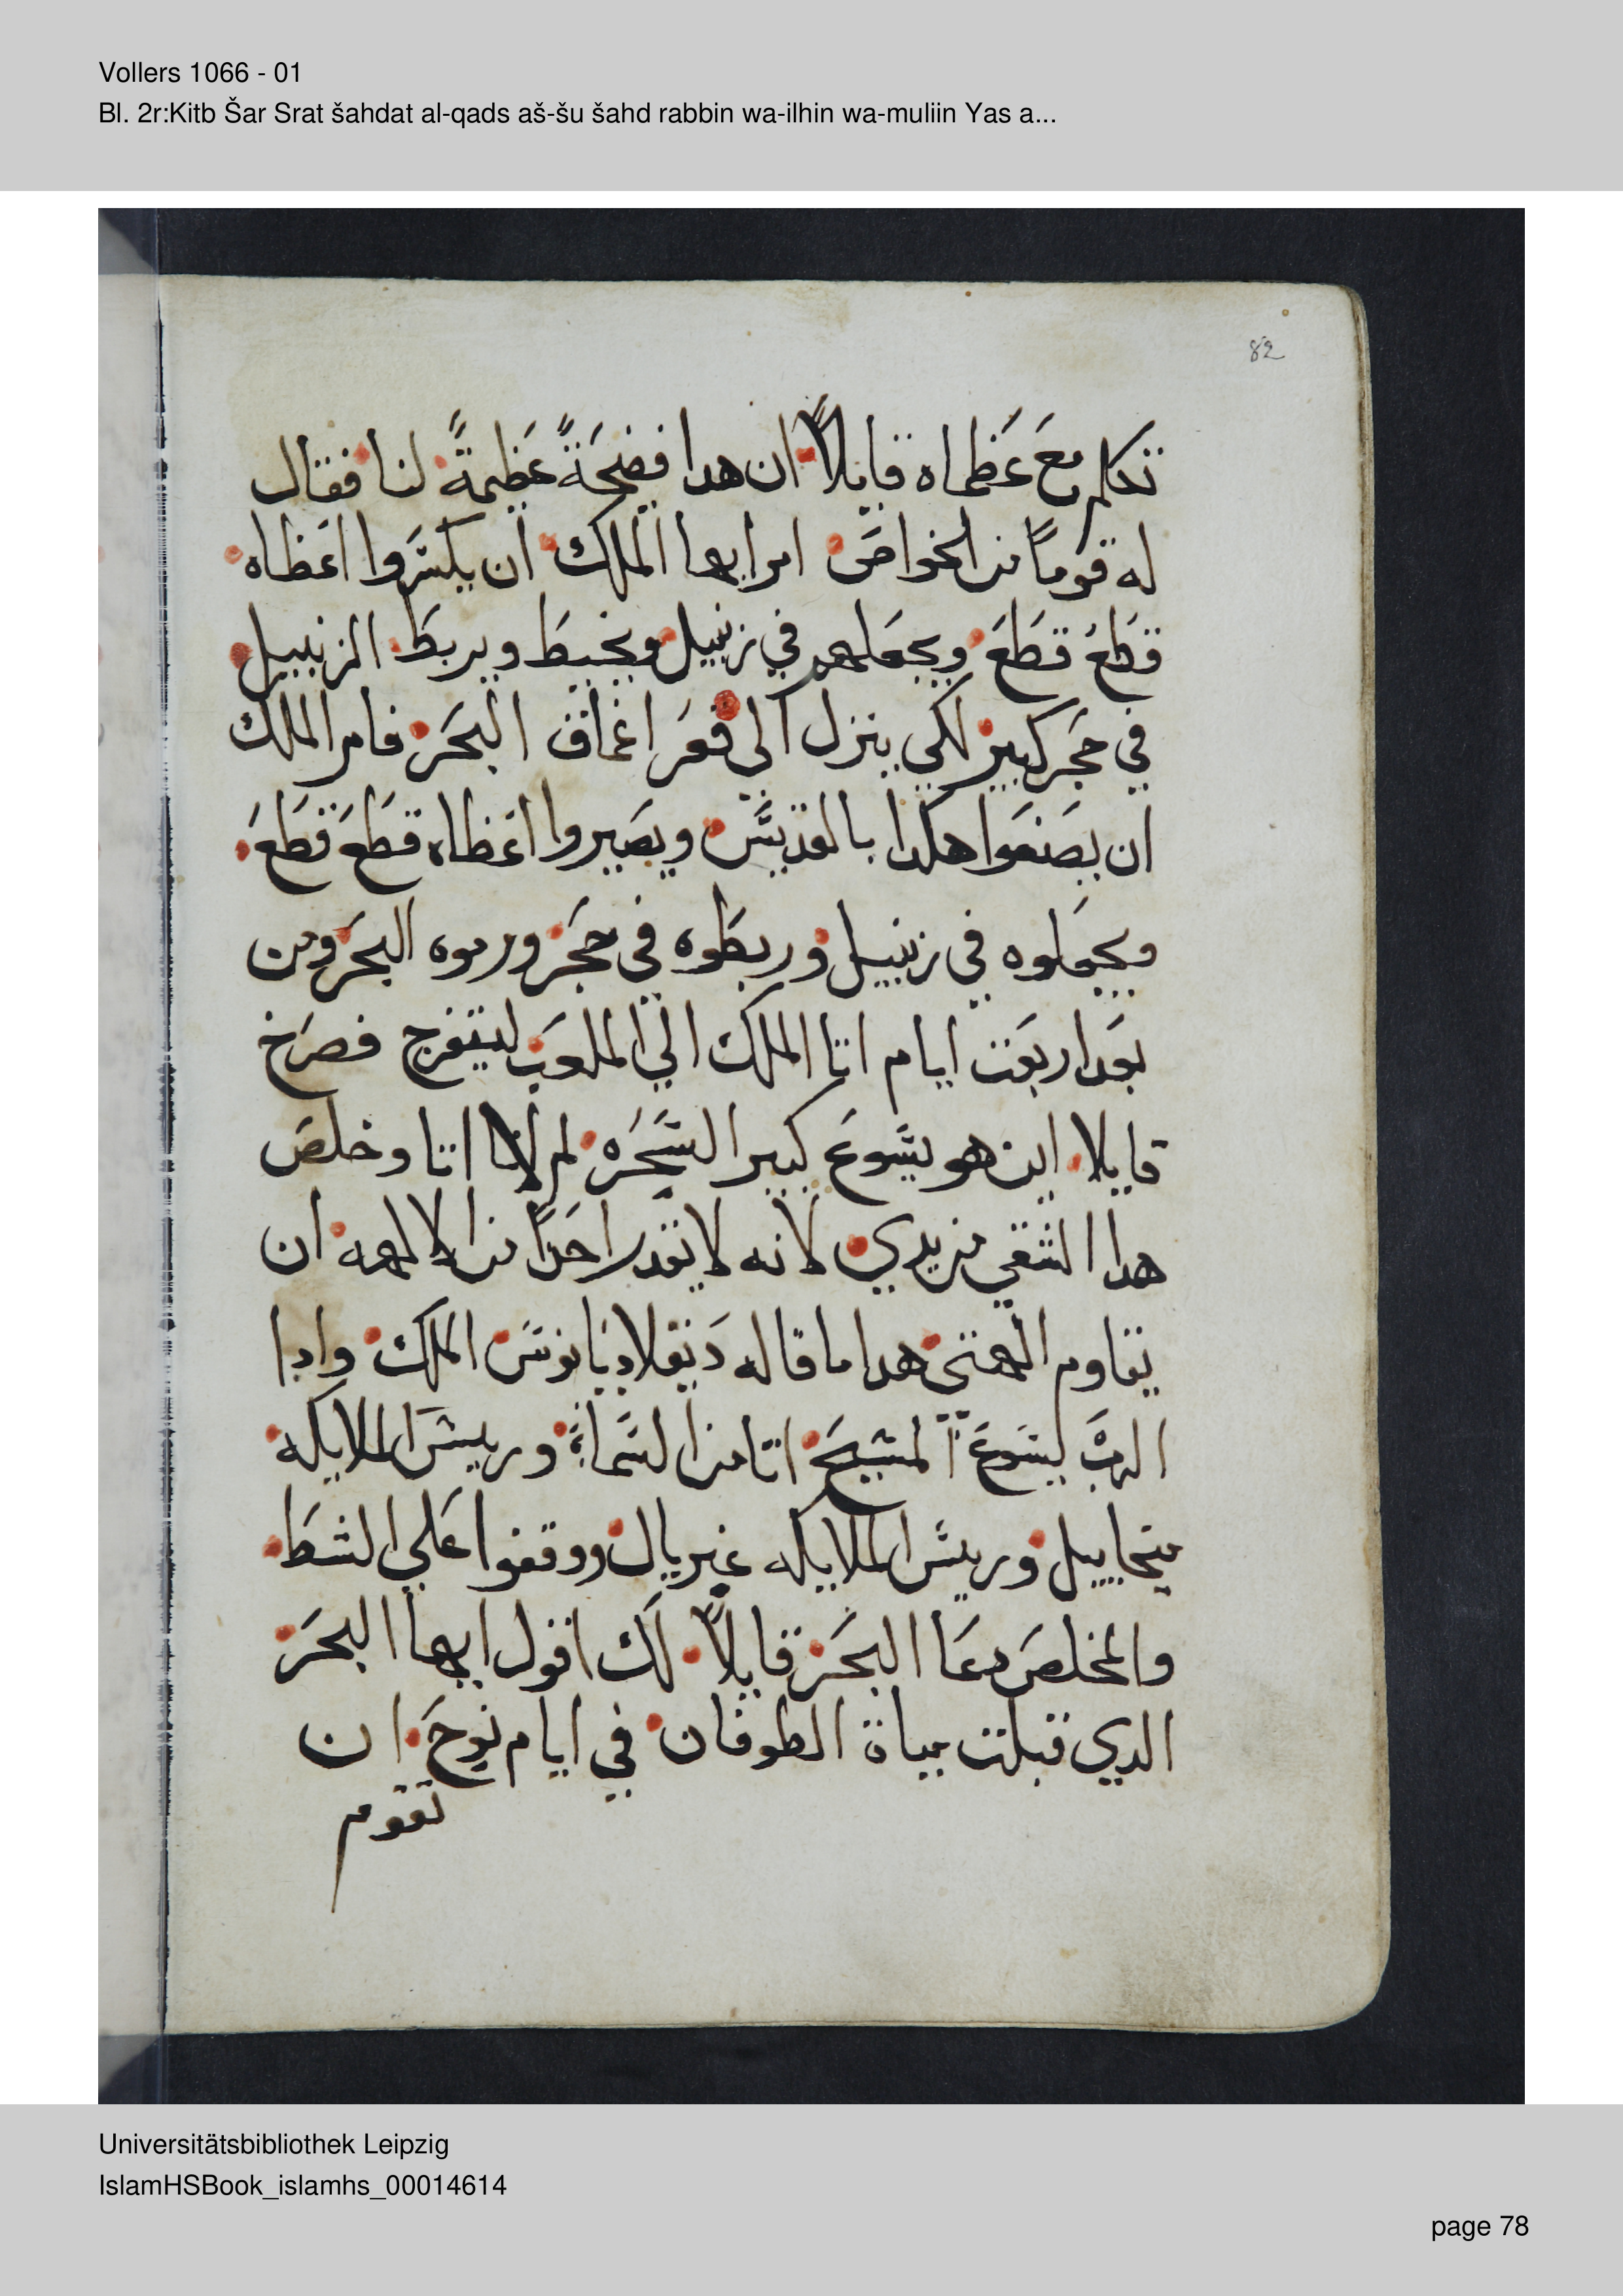 Vollers 1066 - 01
Bl. 2r:Kitb Šar Srat šahdat al-qads aš-šu šahd rabbin wa-ilhin wa-muliin Yas a...
82
تكلم معَ عَظماه قايلاً ان هدا فضيحَةً عَظيمةً لنا فقال
له قومًا من الخواصَ امر ايها الملك ان يكسَروا اعَظاه
قطَعَ قطَعَ ويجعَلهم في زنبيل ويخيطَ ويربطَ الزنبيل
في حَجَر كبير لكي ينزل الى قعَر اغماق البحَر فامر الملك
ان يصَنعَوا هكدا بالقديسَ ويصَيروا اعَظاه قطَعَ قطَعَ
ويجعَلوه في زنبيل وربطَوه في حجَر ورموه البحَر ومن
بعَد اربعَت ايام اتا الملك الي الملعَب ليتفرج فصرَخ
قايلا اين هو يسَوعَ كبير السَحَره لم لا اتا وخلصَ
هدا الشقي من يدي لانه لا يقدر احَدًا من الالهه ان
يقاوم الهتي هدا ما قاله دَيقلاديَانوسَ الملك وادا
الربَ يسَوعَ المسَيحَ اتا من السَماءً وريسَ الملايكه
ميخاييل وريسَ الملايكه غبريال ووقفوا عَلي الشطَ
والمخلصَ دعَا البحَر قايلاً لك اقول ايها البحَر
الدي قبلت مياة الطوفان في ايام نوحَ ان
تقوم
Universitätsbibliothek Leipzig
IslamHSBook_islamhs_00014614
page 78